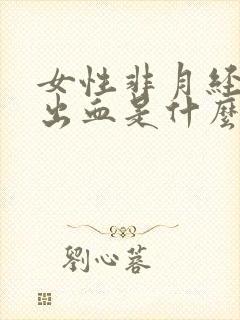 女性非月经
出血是什麽
劉心蓉